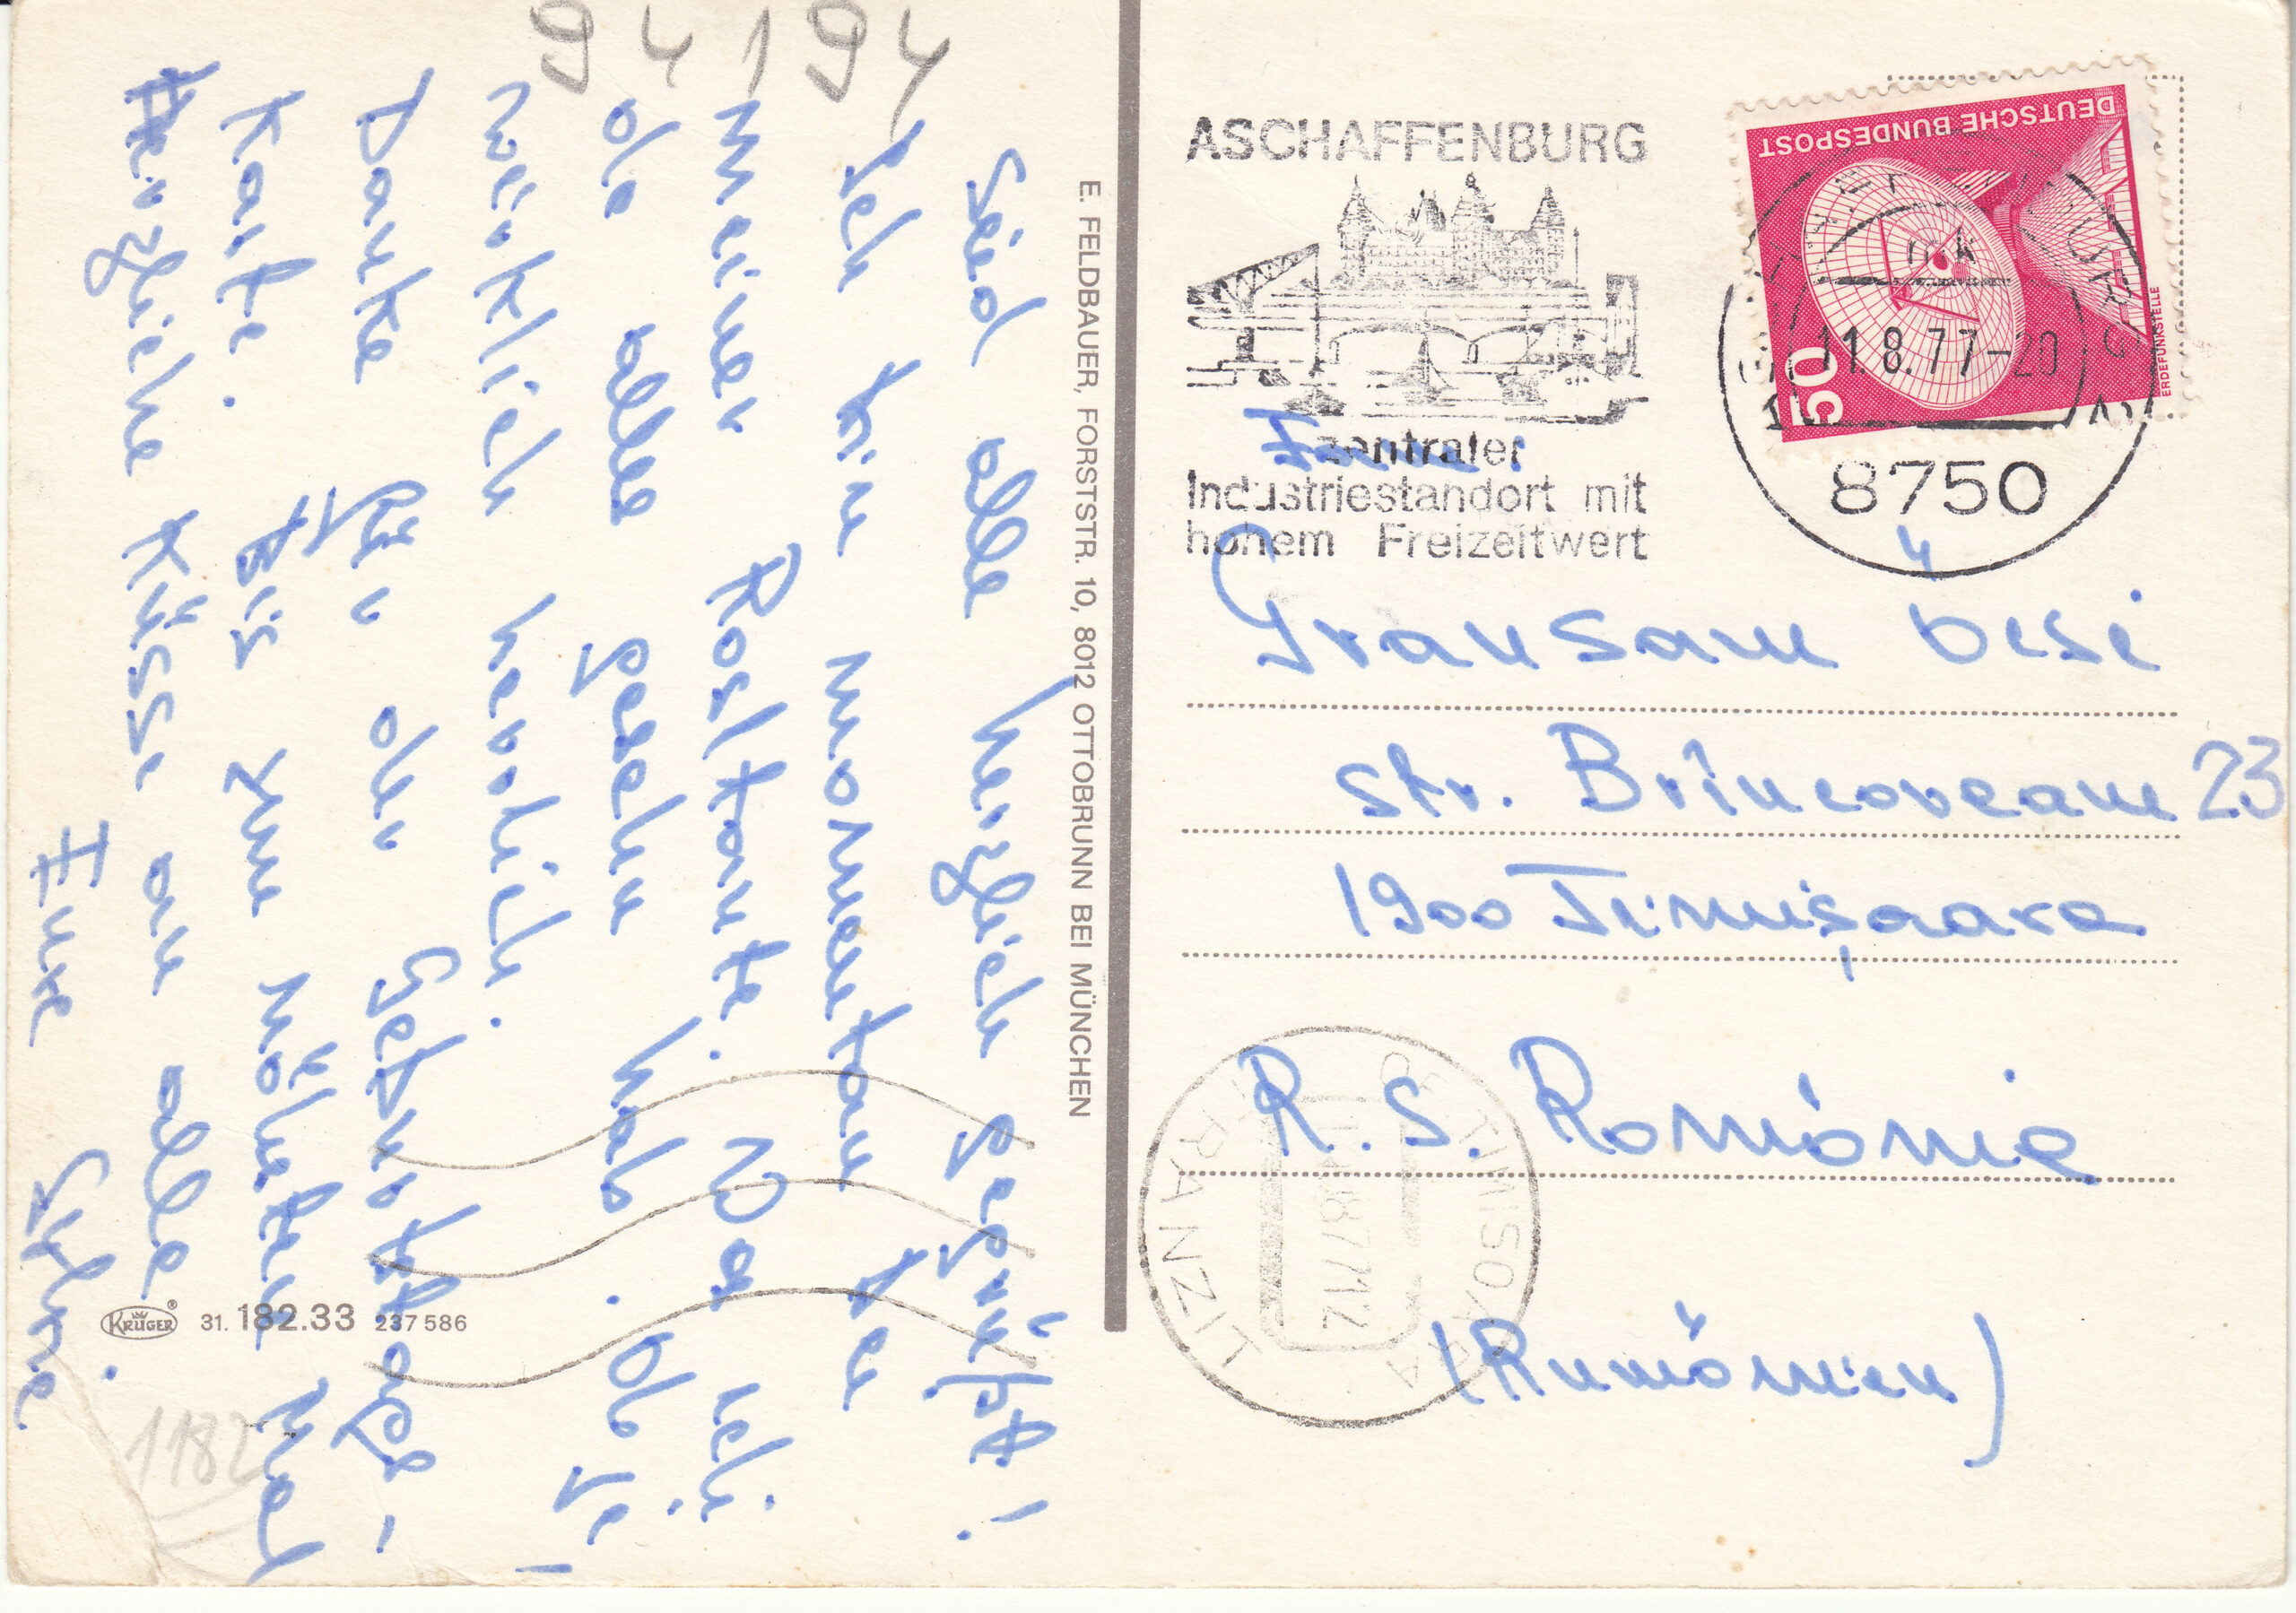 94194
Seid alle herzlich gegrüßt!
Ich bin momentan bei
meiner Rosltante. Wo ich
die alle gesehn hab. Die is
wirklich herdlich!
Danke für die Geburtstags-
Karte. Bis zum nächsten Mal
Herzliche Küsse an alle
Eure Sylvie.
E. FELDBAUER, FORSTSTR. 10, 8012 OTTOBRUNN BEI MÜNCHEN
KRÜGER® 31. 182.33 237 586
1182
ASCHAFFENBURG
zentraler
Industriestandort mit
hohem Freizeitwert
DEUTSCHE BUNDESPOST
50
ERDEFUNKSTELLE
mk
11.8.77-20
8750
Fam.:
Gransam
str. Brîncoveanu 23
1900 Timişoara
R. S. România
(Rumänien)
TIMISOARA
TRANZIT